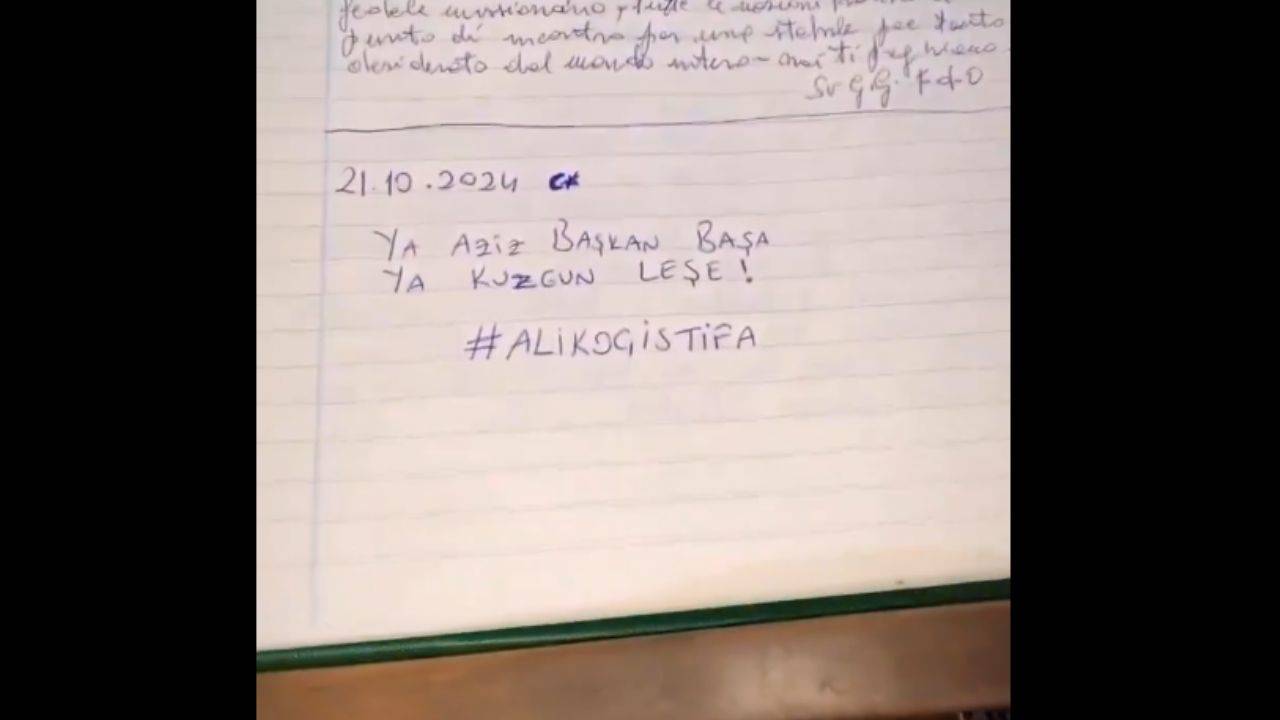 fedele missionario, tutte le nazioni
punto di incontro per una stabile pace tanto
desiderata dal mondo intero - noi ti preghiamo.
21.10.2024
YA AZİZ BAŞKAN BAŞA
YA KUZGUN LEŞE!
#ALİKOÇİSTİFA